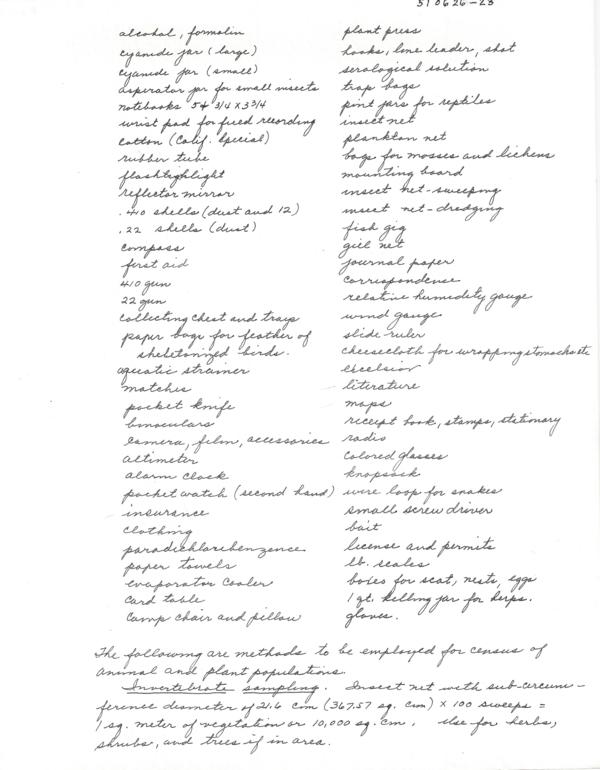 510626-23
alcohol, formalin
cyanide jar (large)
cyanide jar (small)
aspirator jar for small insects
notebooks 5 3/4 x 3 3/4
wrist pad for field recording
cotton (Calif. Special)
rubber tube
flashlight
reflector mirror
.410 shells (dust and 12)
.22 shells (dust)
compass
first aid
410 gun
22 gun
collecting chest and trays
paper bags for feather of
skeletonized birds.
aquatic strainer
matches
pocket knife
binoculars
camera, film, accessories
altimeter
alarm clock
pocket watch (second hand)
insurance
clothing
paradichloribenzence
paper towels
evaporator cooler
card table
camp chair and pillow
plant press
hooks, line leader, shot
serological solution
trap bags
pint jars for reptiles
insect net
plankton net
bags for mosses and lichens
mounting board
insect net-sweeping
insect net-dredging
fish gig
gill net
journal paper
correspondense
relative humidity gauge
wind gauge
slide ruler
cheesecloth for wrapping stomachs etc
excelsior
literature
maps
receipt book, stamps, stationary
radio
colored glasses
knapsack
wire loop for snakes
small screw driver
bait
license and permits
lb. scales
boxes for scat, nests, eggs
1 qt. killing jar for herps.
gloves.
The following are methods to be employed for census of
animal and plant populations.
Invertebrate sampling. Insect net with sub-circum-
ference diameter of 21.6 cm (367.57 sq. cm) x 100 sweeps =
1 sq. meter of vegetation or 10,000 sq. cm. Use for herbs,
shrubs, and trees if in area.